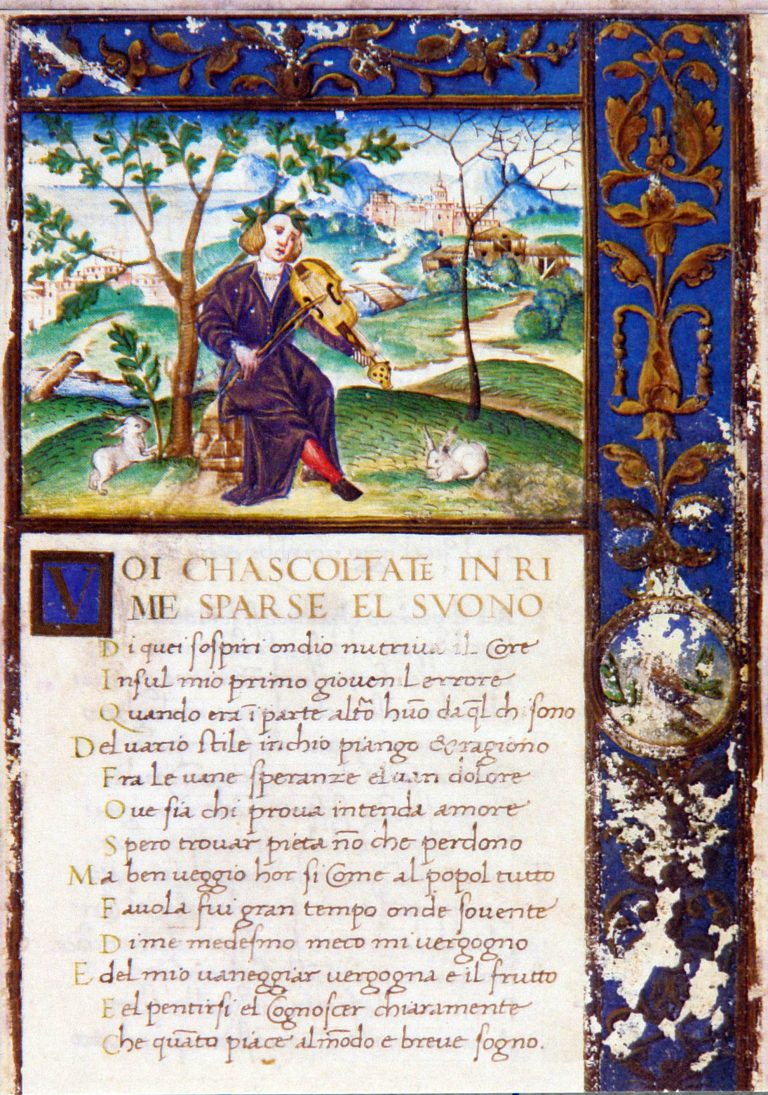 VOI CHASCOLTATE IN RI
ME SPARSE EL SVONO
Di quei sospiri ondio nutriva il Core
Insul mio primo giovenil errore
Quando era ī parte altrō huō da ql̄ chi sono
Del vario stile inchio piango & ragiono
Fra le vane speranze el van dolore
Ove sia chi prova intenda amore
Spero trovar pieta nō che perdono
Ma ben veggio hor si Come al popol tutto
Favola fui gran tempo onde sovente
Di me medesmo meco mi vergogno
E del mio vaneggiar vergogna e il frutto
E el pentirsi el Cognoscer chiaramente
Che quāto piace al mōdo e breve sogno.